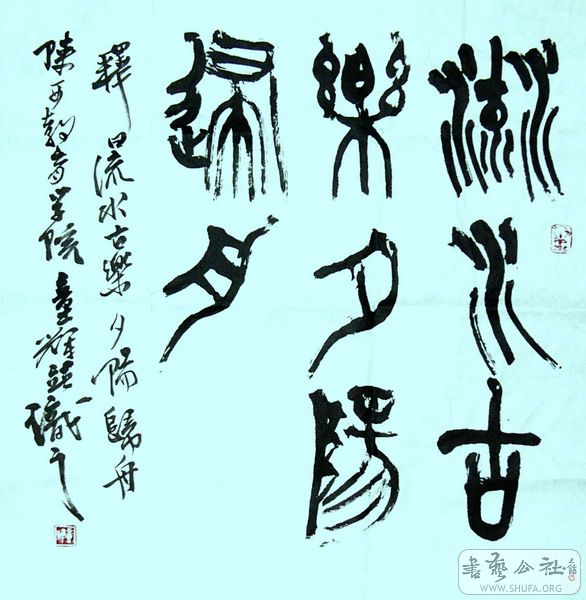 流水古
樂夕陽
歸舟
釋曰流水古樂夕陽歸舟
陝西教育学院童輝鉅識之
書藝公社
WWW.SHUFA.ORG